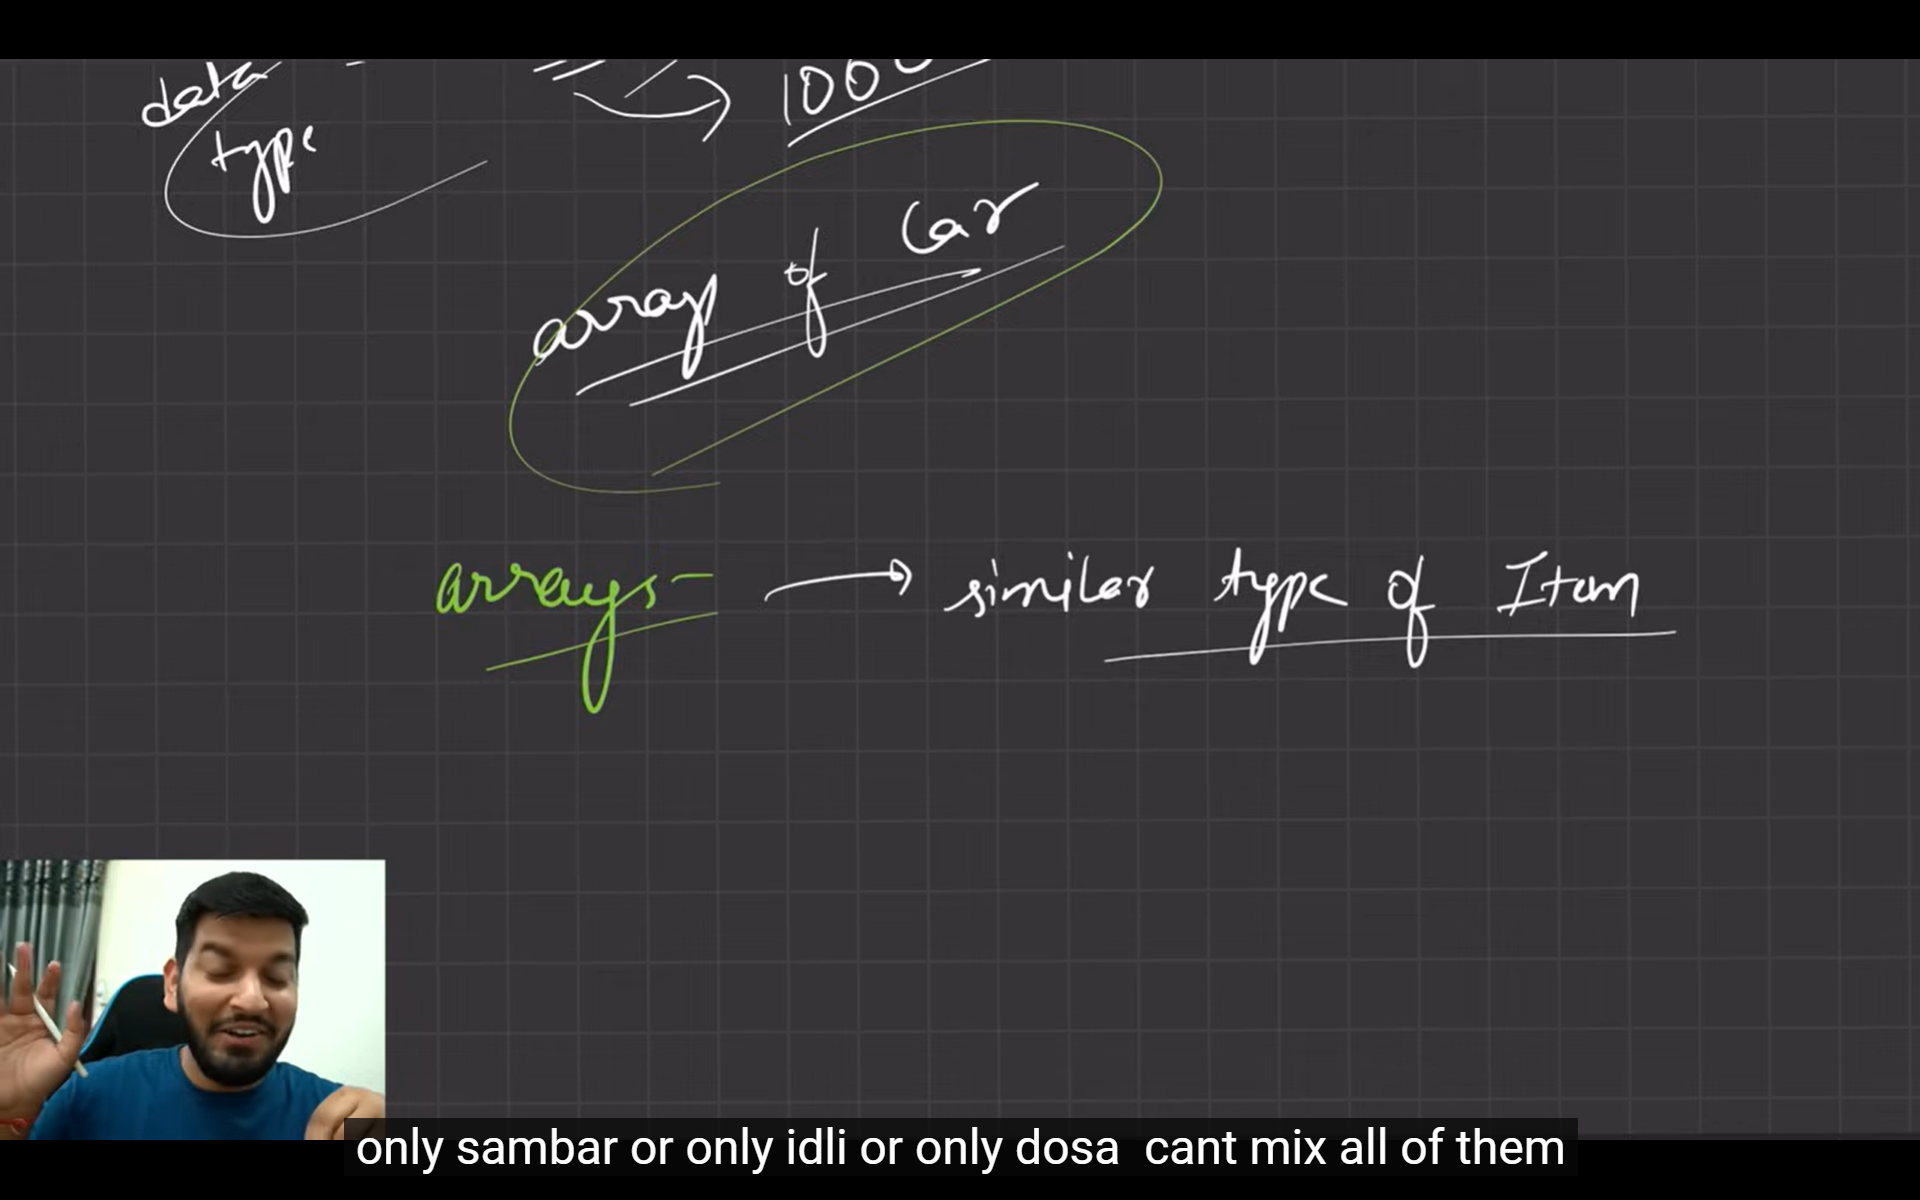 data
type
100
array of Car
arrays → similar type of Item
only sambar or only idli or only dosa  cant mix all of them